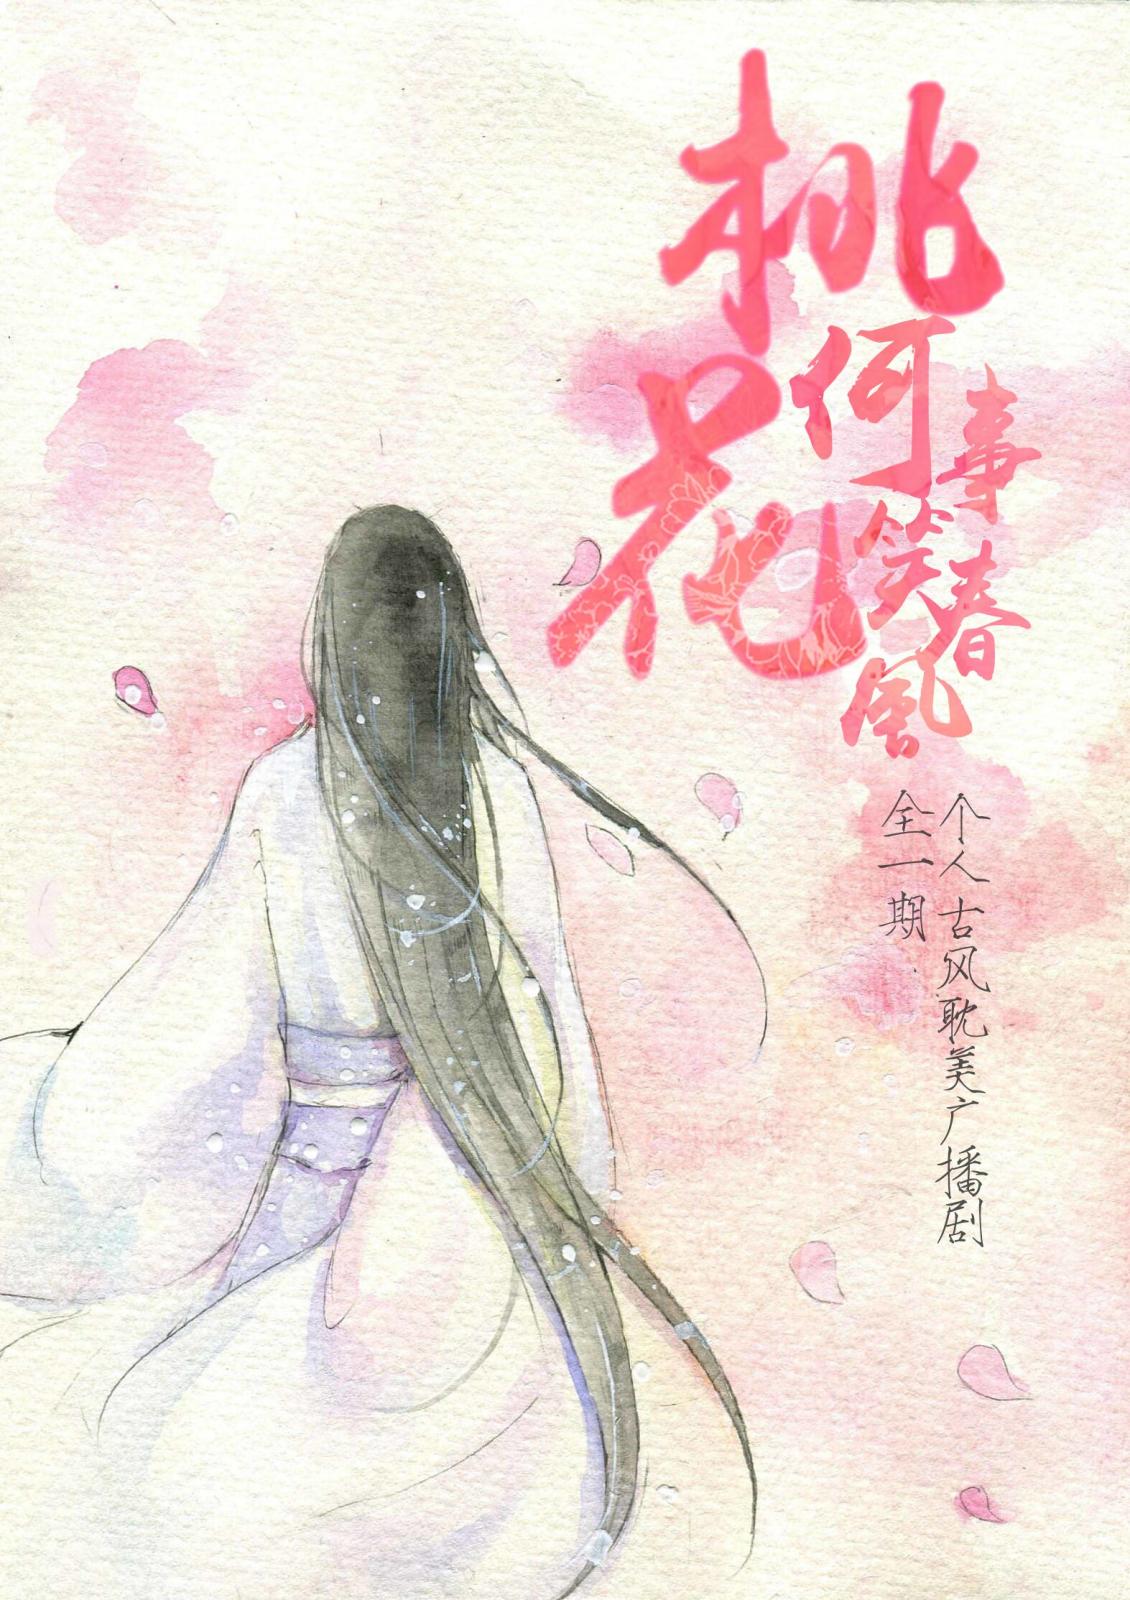 桃花
何事笑春風
个人古风耽美广播剧
全一期